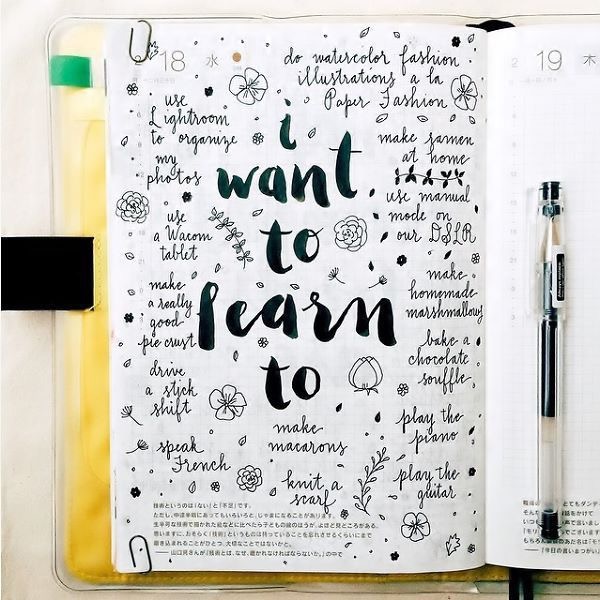 18 水
do watercolor fashion
illustrations a la
Paper Fashion
use
Lightroom
to organize
my
photos
i
want
to
learn
to
make ramen
at home
use manual
mode on
our DSLR
use
a Wacom
tablet
make
homemade
marshmallows
make
a really
good
pie crust
bake a
chocolate
souffle
drive
a stick
shift
make
macarons
play the
piano
speak
French
knit a
scarf
play the
guitar
技術というのは「ない」と「不足」です。
19 木
2